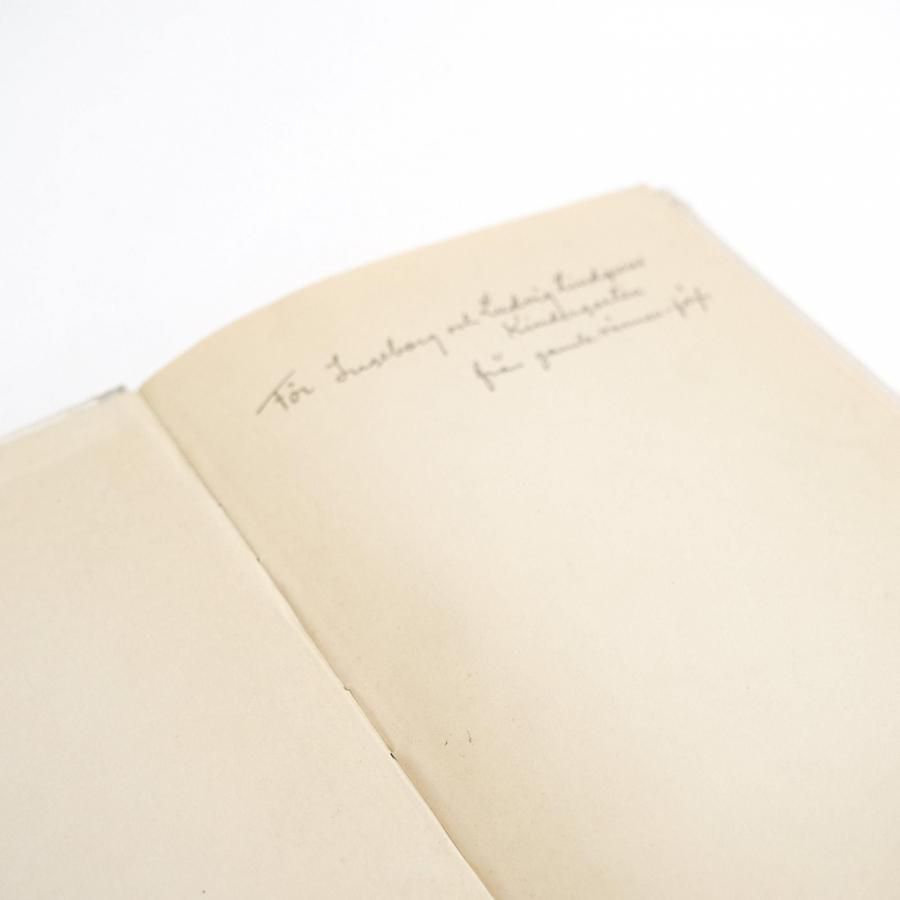 För Ingeborg och Ludvig Lindgren
Kindergarten
från gamle vännen